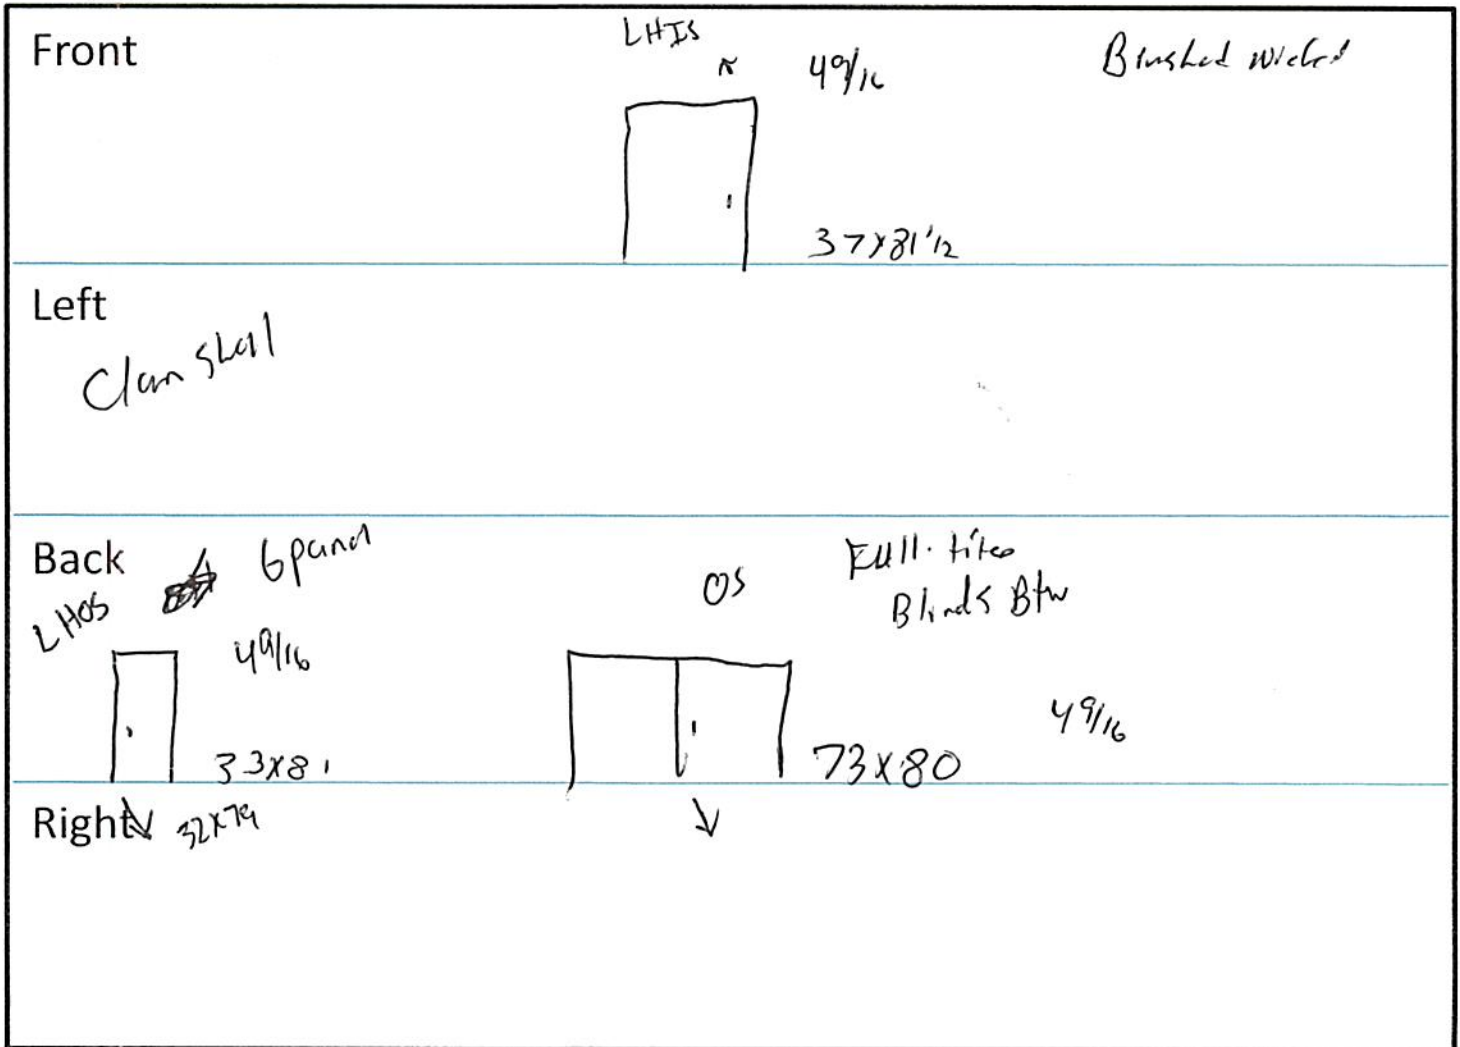 Front
LHIS
4 9/16
Brushed Nickel
37x81 1/2
Left
Clam Shell
Back
6 panel
LHOS
4 9/16
33x81
OS
Full
Blinds Btw
4 9/16
73x80
Right
32x79